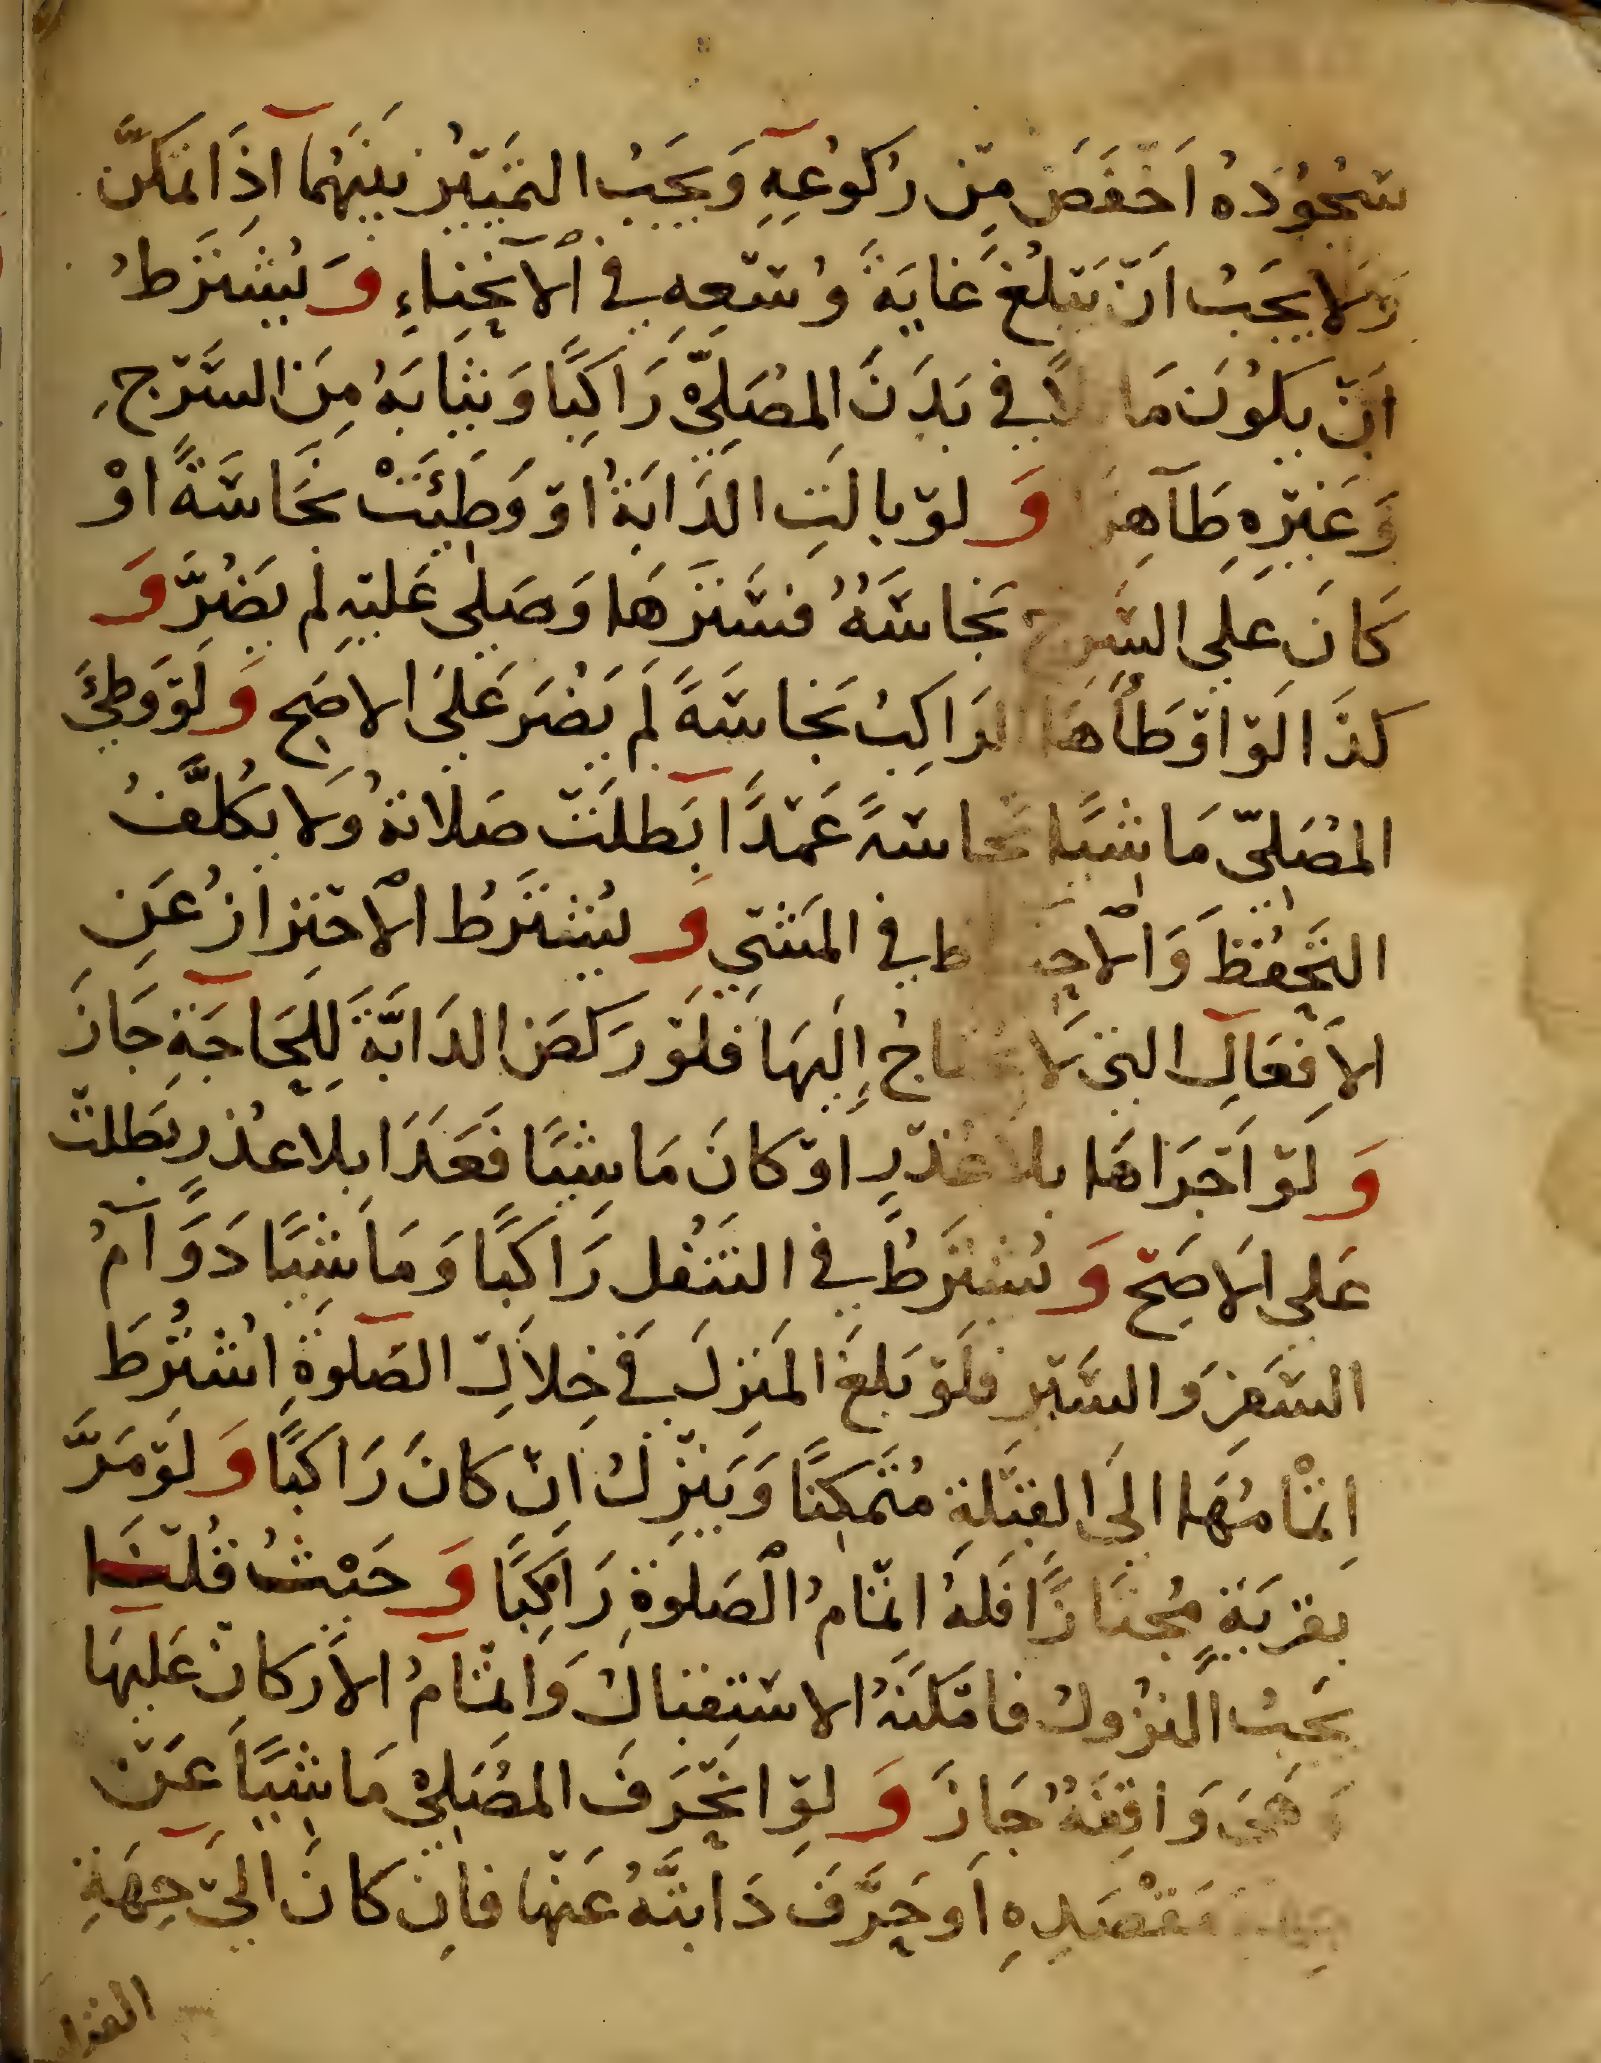 سُجُوْدَهُ اَخْفَضَ مِنْ رُكُوْعِهِ وَيَجِبُ التَمْيِيْزُ بَيْنَهُمَا اِذَا تَمَكَّنَ
وَلَا يَجِبُ اَنْ يَبْلُغَ غَايَةَ وُسْعِهِ فِي الْاِنْحِنَاءِ وَيُشْتَرَطُ
اَنْ يَكُوْنَ مَا فِي بَدَنَ المُصَلِّيْ رَاكِبًا وَثِيَابَهُ مِنَ السَّرْجِ
وَغَيْرِهِ طَاهِرًا وَلَوْ بَالَتِ الدَابَةُ اَوْ وَطِئَتْ نَجَاسَةً اوْ
كَانَ عَلَى السَّرْجِ نَجَاسَةٌ فَسَتَرَهَا وَصَلَّى عَلَيْهِ لَمْ يَضُرَّ وَ
كَذَا لَوْ اَوْطَأَهَا الرَاكِبُ نَجَاسَةً لَمْ يَضُرَ عَلَى الاَصَحِ وَلَوْ وَطِئَ
المُصَلِّيْ مَاشِيًا نَجَاسَةً عَمْدًا بَطَلَتْ صَلَاتهُ وَلَا يُكَلَّفُ
التَحَفُّظَ وَالْاِحْتِيَاطَ فِي المَشْيِ وَيُشْتَرَطُ الْاِحْتِرَازُ عَنِ
الاَفْعَالِ الَتِي لَا يَحْتَاجُ اِلَيْهَا فَلَوْ رَكَضَ الدَابَّةَ لِلْحَاجَةِ جَازَ
وَلَوْ اَجْرَاهَا بِلَا عُذْرٍ اَوْ كَانَ مَاشِيًا فَعَدَا بِلَا عُذْرٍ بَطَلَتْ
عَلَى الاَصَحِّ وَيُشْتَرَطُ فِي التَنَفُل رَاكِبًا وَمَاشِيًا دَوَامُ
السَفَرِ وَالسَّيْرِ فَلَوْ بَلَغَ المَنْزِلَ فِي خِلَالِ الصَلوةِ اُشْتُرِطَ
اِتْمَامُهَا اِلَى القِبْلَةِ مُتَمَكِّنًا وَيَنْزِلُ اِنْ كَانَ رَاكِبًا وَلَوْ مَرَّ
بِقَرْيَةٍ مُجْتَازًا فَلَهُ اِتْمَامُ الْصَلوةِ رَاكِبًا وَحَيْثُ قُلْنَا
يَجِبُ النُزُولُ فَاَمْكَنَهُ الاسْتِقْبَالُ وَاِتْمَامُ الاَرْكَانِ عَلَيْهَا
وَهِيَ وَاقِفَةٌ جَازَ وَلَوِ انْحَرَفَ المُصَلِّيْ مَاشِيًا عَنْ
جِهَةِ مَقْصَدِهِ اَو حَرَّفَ دَابَتَهُ عَنْهَا فَاِنْ كَانَ اِلَى جِهَةِ
القبلة